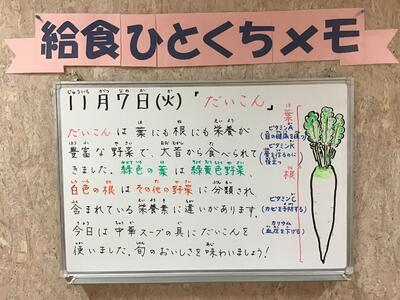 給食ひとくちメモ
11月7日(火)「だいこん」
だいこんは葉にも根にも栄養が
豊富な野菜で、大昔から食べられて
きました。緑色の葉は緑黄色野菜、
白色の根はその他の野菜に分類され
含まれている栄養素に違いがあります。
今日は中華スープの具にだいこんを
使いました。旬のおいしさを味わいましょう！
葉
ビタミンA
(目の健康を保つ)
ビタミンK
根
ビタミンC
(カゼを予防する)
カリウム
(血圧を下げる)